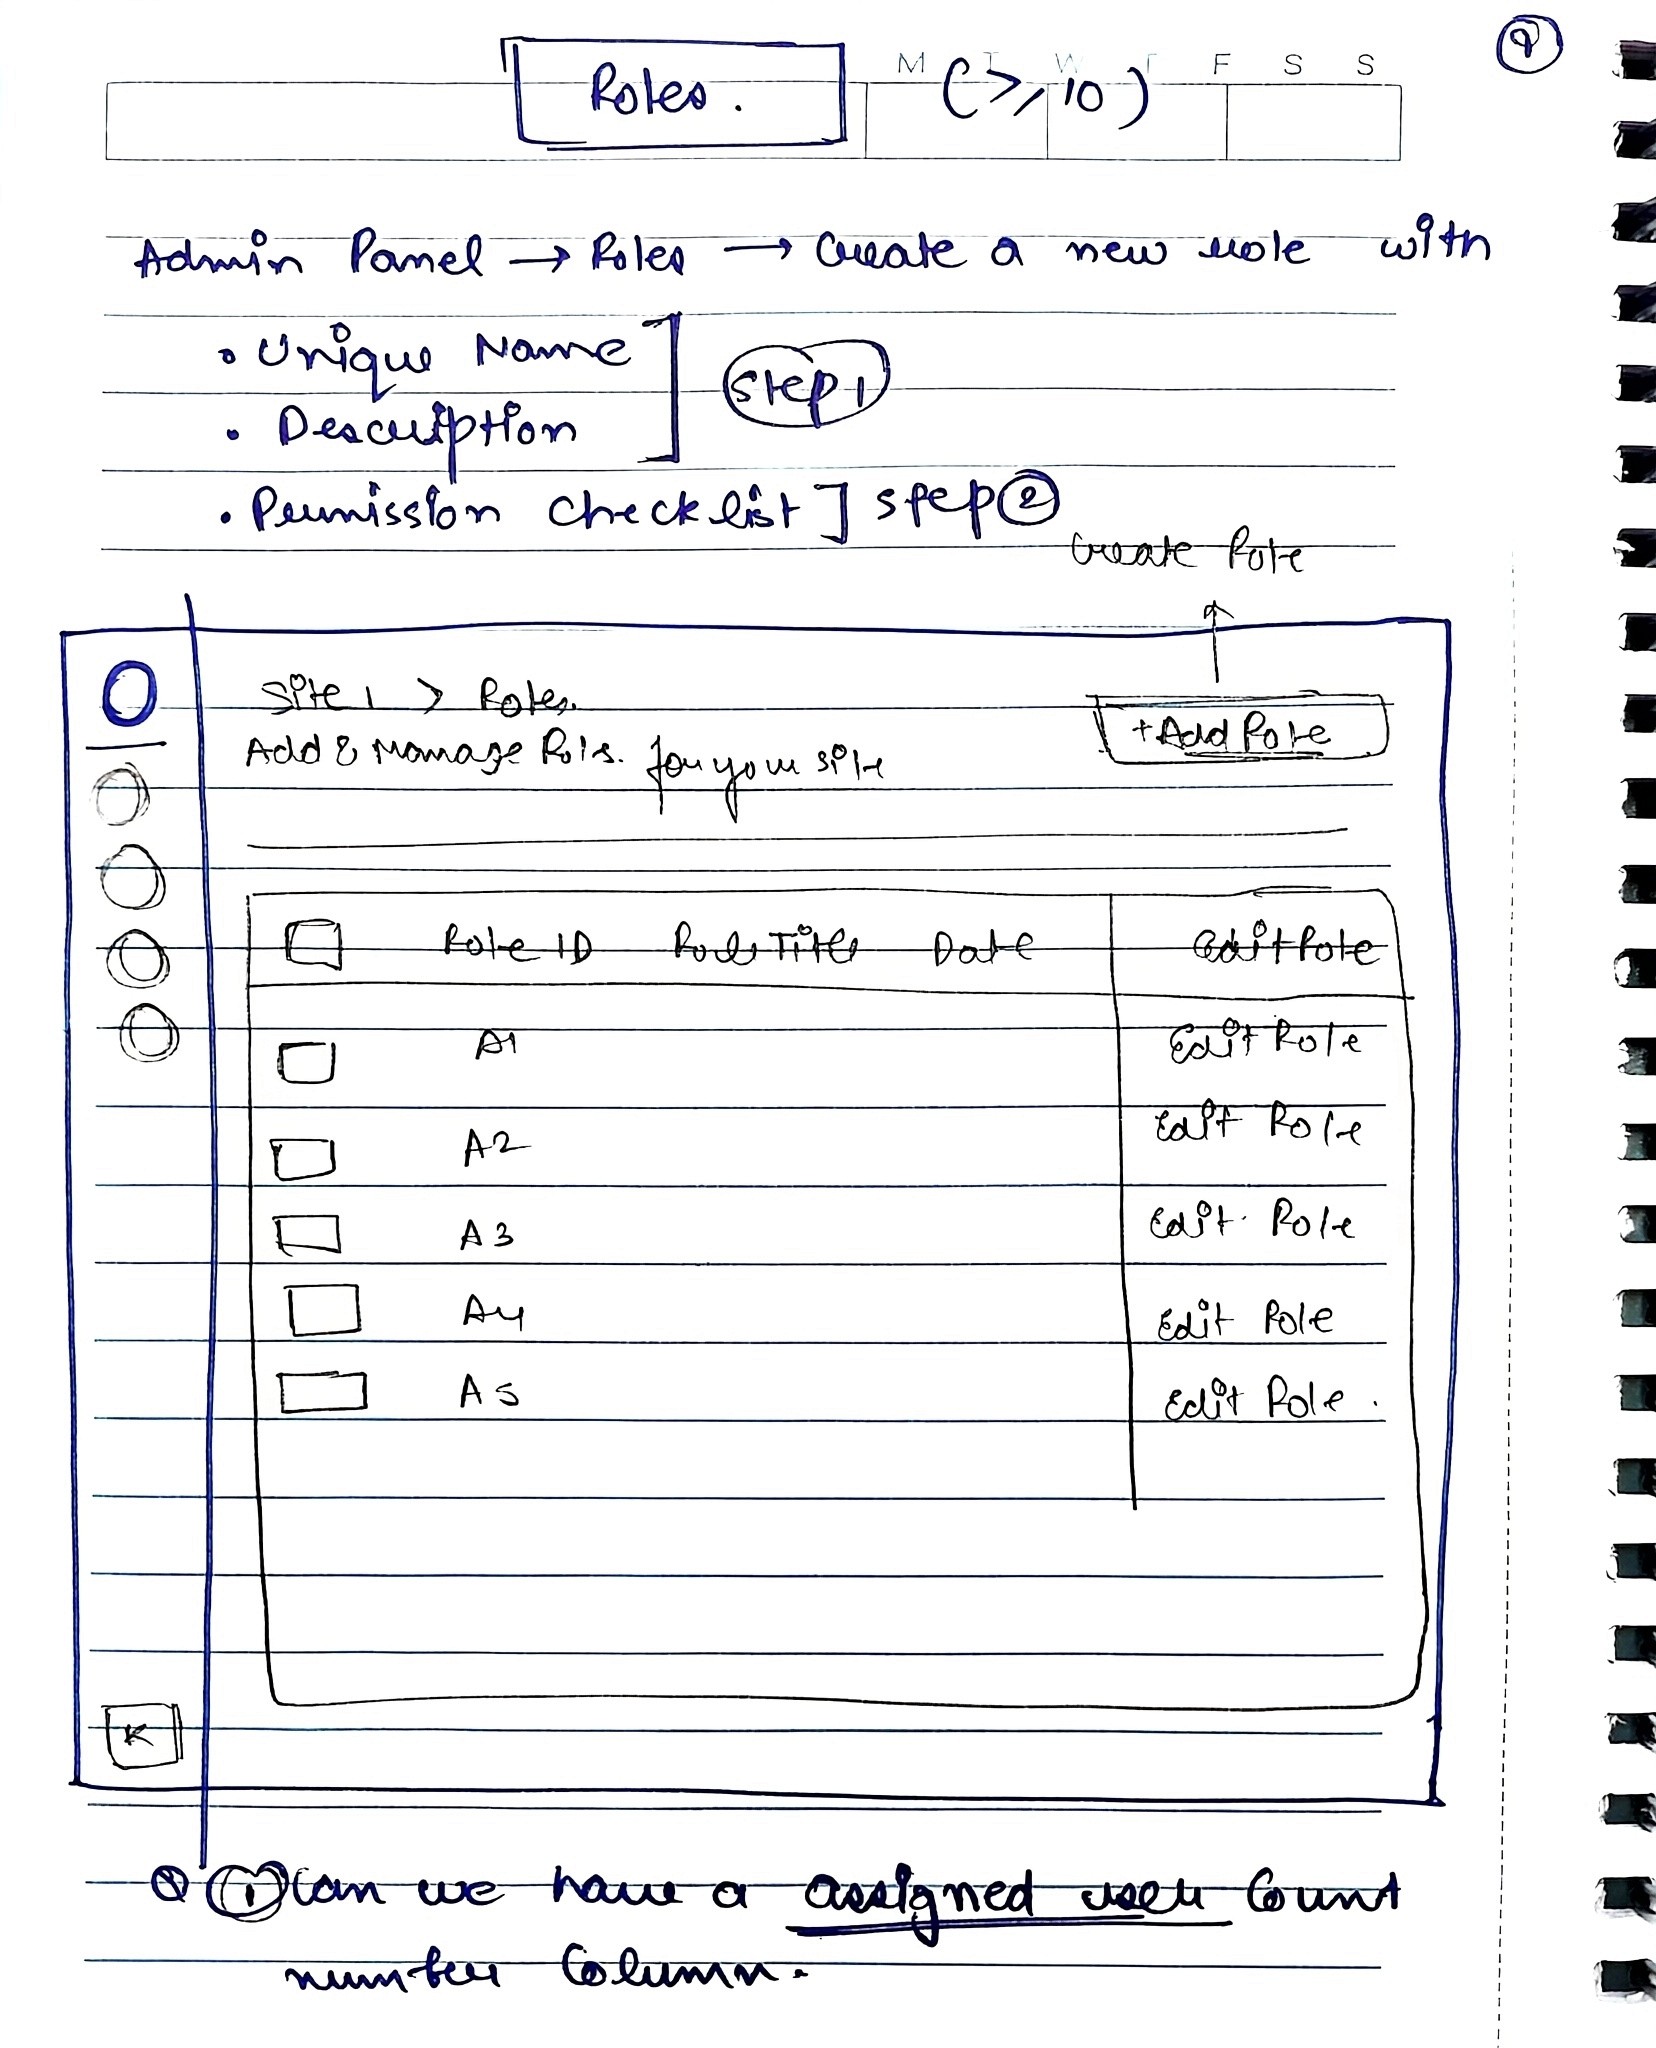 M T W T F S S
Roles. (≥ 10)
Admin Panel → Roles → Create a new role with
• Unique Name
• Description ] Step 1
• Permission Checklist ] Step 2
Create Role
Site 1 > Roles.
+ Add Role
Add & Manage Rols. for your site
Role ID Role Title Date Edit Role
A1 Edit Role
A2 Edit Role
A3 Edit Role
A4 Edit Role
A5 Edit Role.
K
Q 1 Can we have a assigned user Count
number Column.